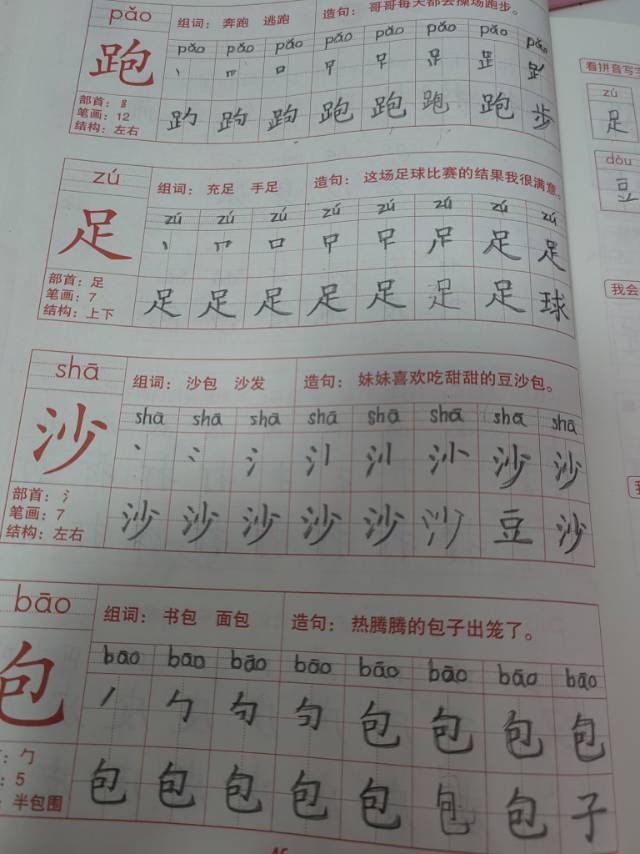 pǎo 组词: 奔跑 逃跑 造句: 哥哥每天都会操场跑步。
跑 pǎo pǎo pǎo pǎo pǎo pǎo pǎo pǎo
丶 口 口 𠯁
部首: ⻊ 趵 趵 趵 跑 跑 跑 跑 步
笔画: 12
结构: 左右
zú 组词: 充足 手足 造句: 这场足球比赛的结果我很满意。
足 zú zú zú zú zú zú zú zú
丶 口 足 足
部首: 足 足 足 足 足 足 足 足 球
笔画: 7
结构: 上下
shā 组词: 沙包 沙发 造句: 妹妹喜欢吃甜甜的豆沙包。
沙 shā shā shā shā shā shā shā shā
丶 冫 氵 沙 沙
部首: 氵 沙 沙 沙 沙 沙 沙 豆 沙
笔画: 7
结构: 左右
bāo 组词: 书包 面包 造句: 热腾腾的包子出笼了。
包 bāo bāo bāo bāo bāo bāo bāo bāo
丿 勹 勻 包 包 包 包
: 勹 包 包 包 包 包 包 包 子
: 5
: 半包围
看拼音写字
zú
足
dòu
豆
我会